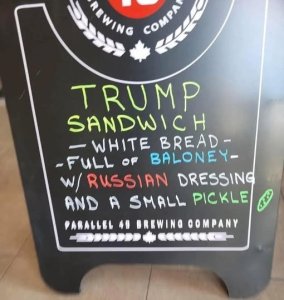 BREWING COMPANY
TRUMP
SANDWICH
- WHITE BREAD -
- FULL OF BALONEY -
W/ RUSSIAN DRESSING
AND A SMALL PICKLE
PARALLEL 49 BREWING COMPANY